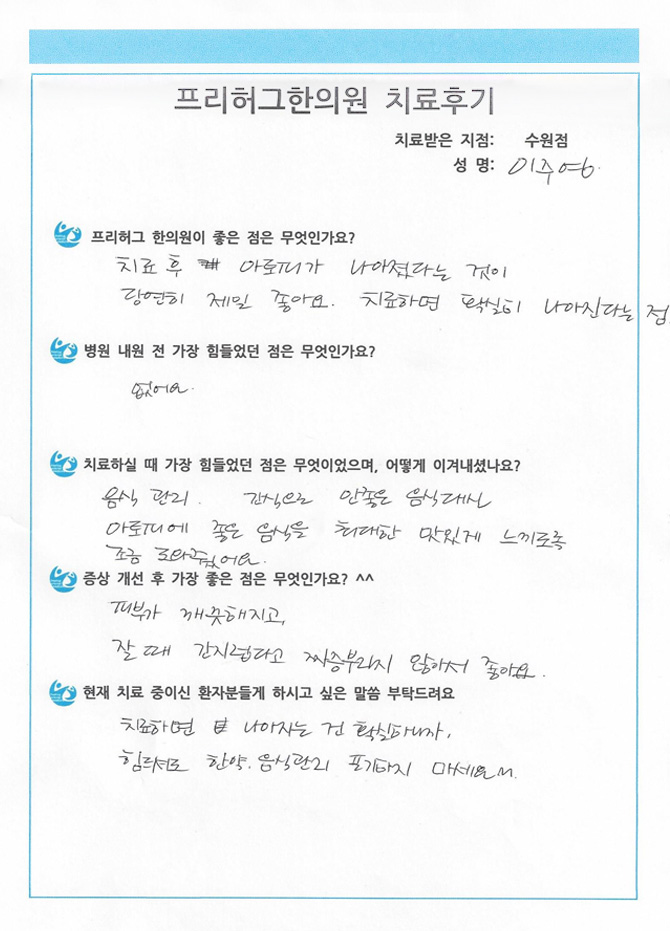 프리허그한의원 치료후기
치료받은 지점: 수원점
성 명: 이주영
프리허그 한의원이 좋은 점은 무엇인가요?
치료 후 아토피가 나아졌다는 것이
당연히 제일 좋아요. 치료하면 확실히 나아진다는 점
병원 내원 전 가장 힘들었던 점은 무엇인가요?
없어요.
치료하실 때 가장 힘들었던 점은 무엇이었으며, 어떻게 이겨내셨나요?
음식 관리. 간식으로 안좋은 음식대신
아토피에 좋은 음식을 최대한 맛있게 느끼도록
조금 도와주었어요.
증상 개선 후 가장 좋은 점은 무엇인가요? ^^
피부가 깨끗해지고,
잘 때 간지럽다고 짜증부리지 않아서 좋아요.
현재 치료 중이신 환자분들게 하시고 싶은 말씀 부탁드려요
치료하면 나아지는 건 확실하니까,
힘드셔도 한약.음식관리 포기하지 마세요~.